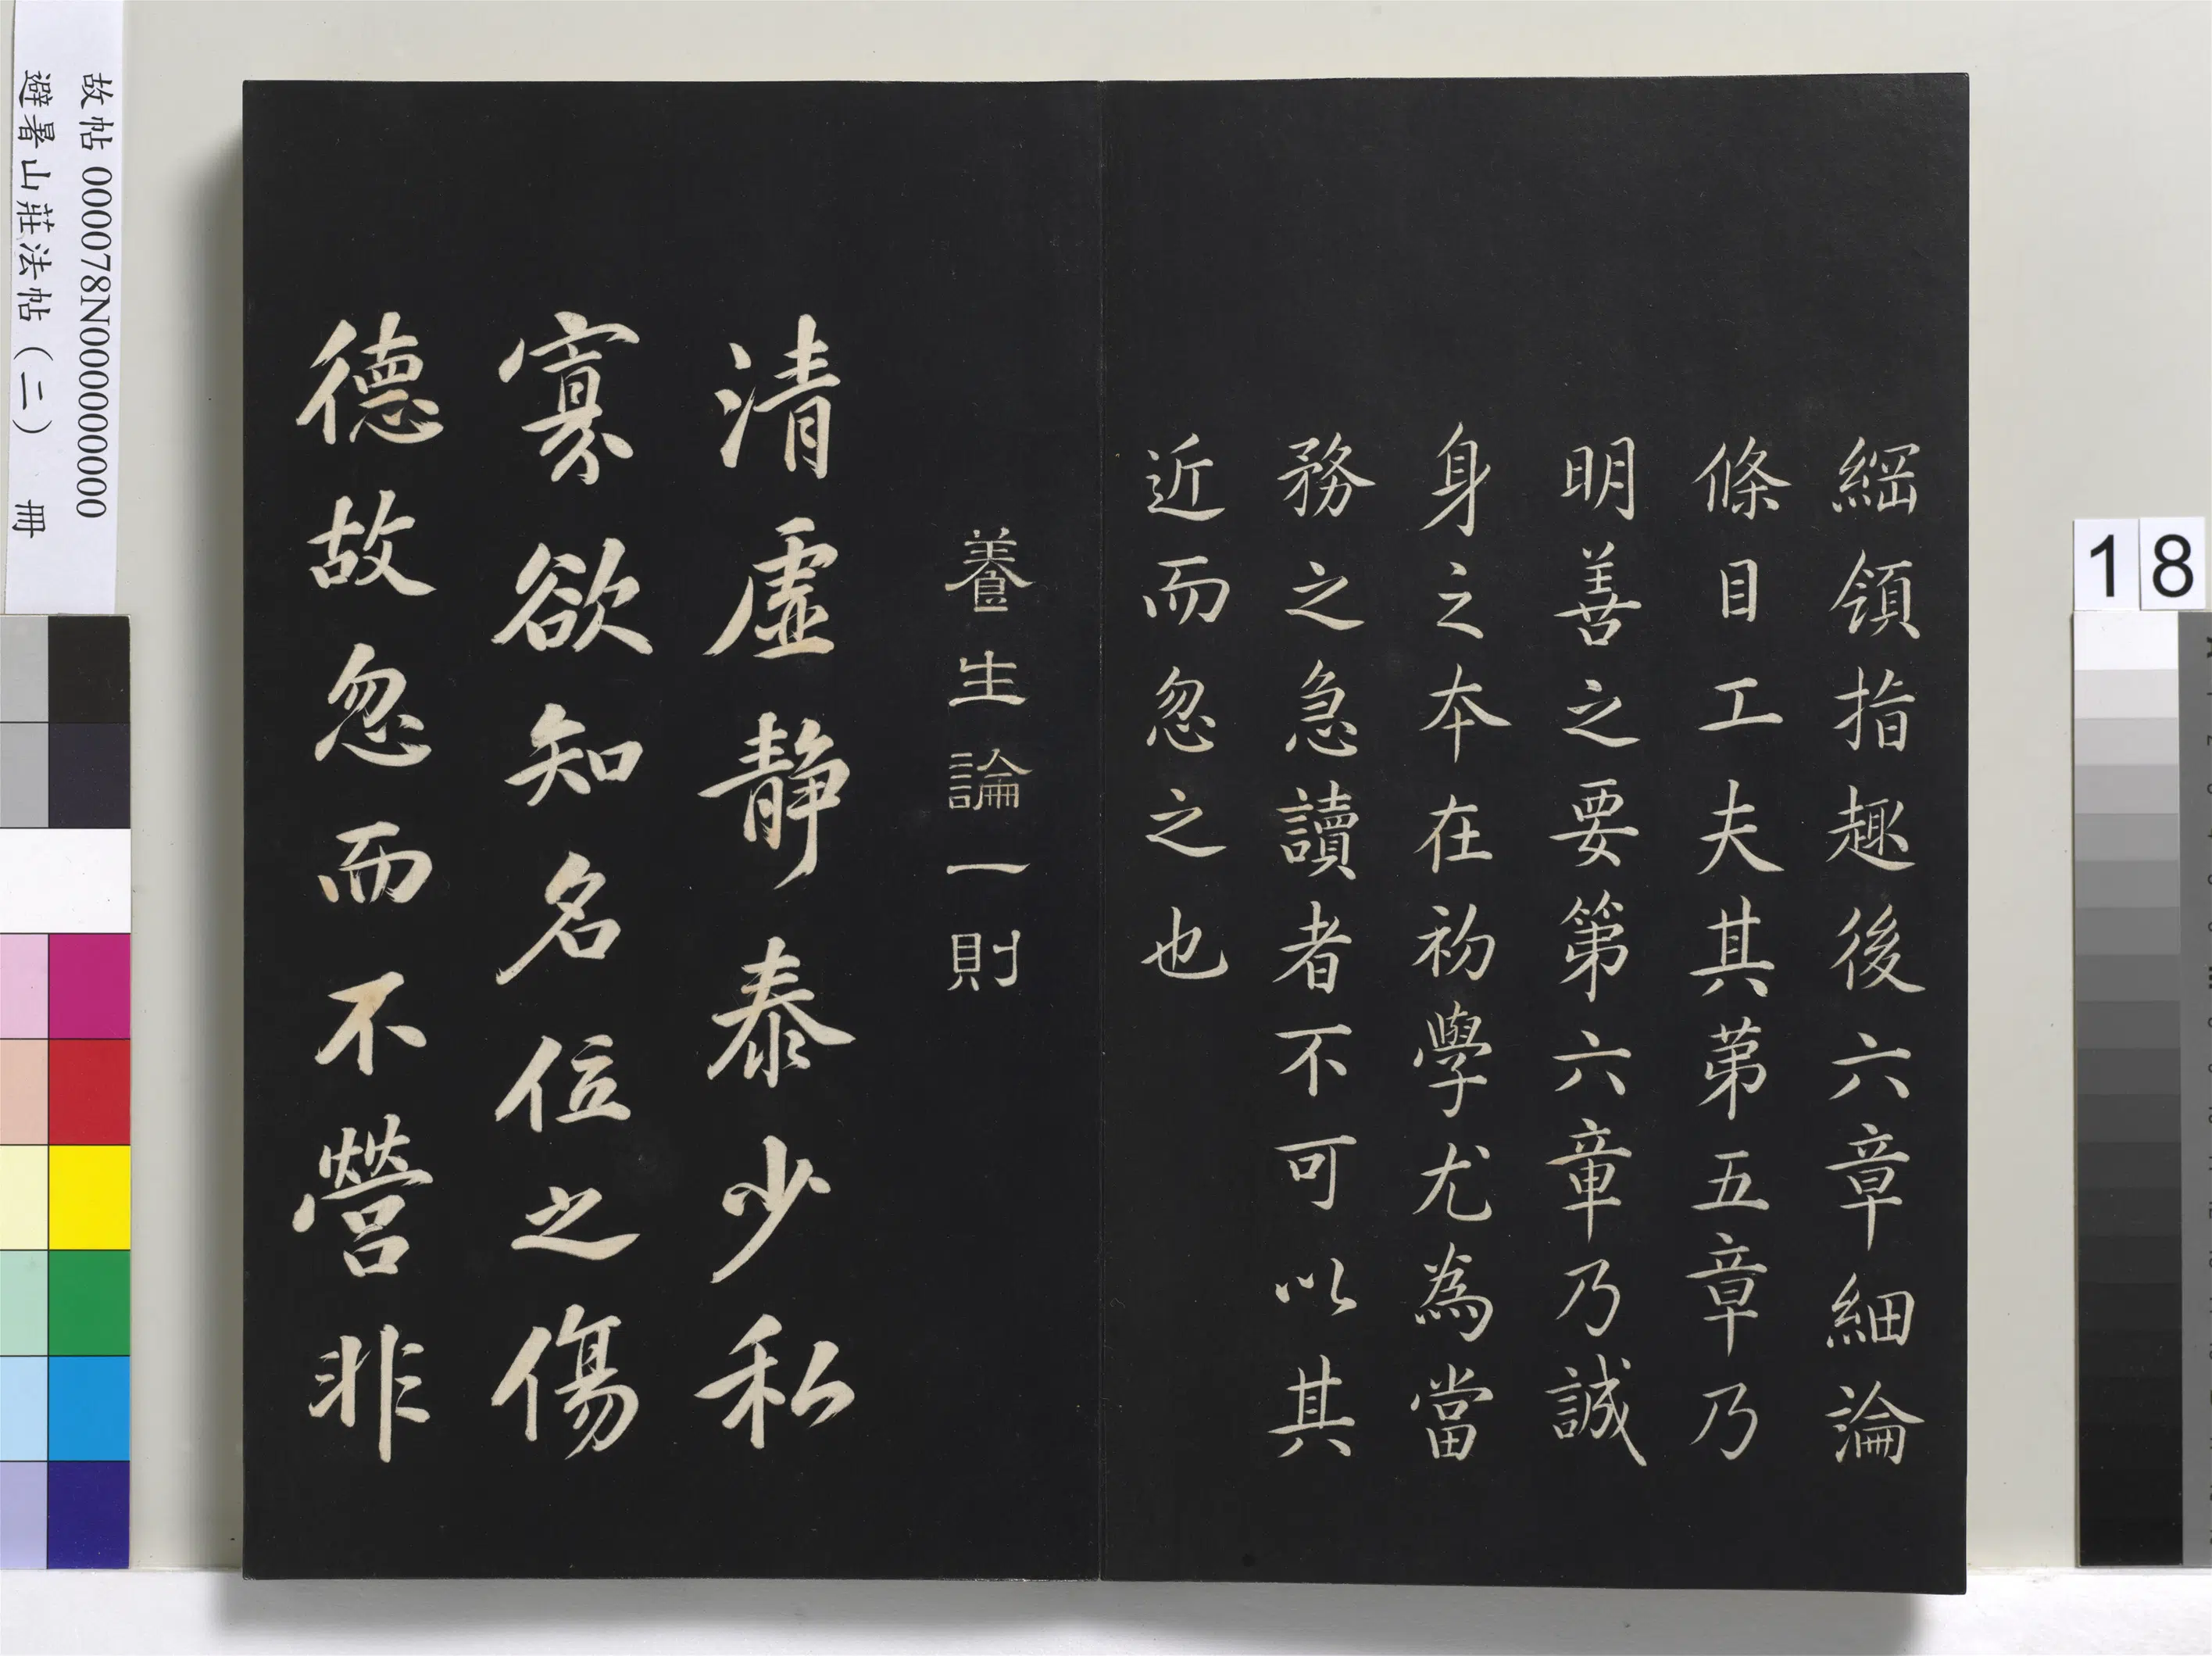 綱領指趣後六章細論
條目工夫其第五章乃
明善之要第六章乃誠
身之本在初學尤為當
務之急讀者不可以其
近而忽之也
養生論一則
清虛靜泰少私
寡欲知名位之傷
德故忽而不營非
故帖 000078N000000000
避暑山莊法帖（二） 冊
18